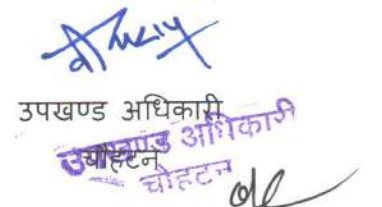 उपखण्ड अधिकारी
चौहटन
उपखण्ड अधिकारी
चोहटन